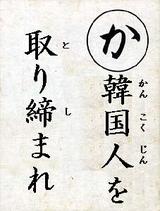 か
韓国人を
かんこくじん
取り締まれ
とし